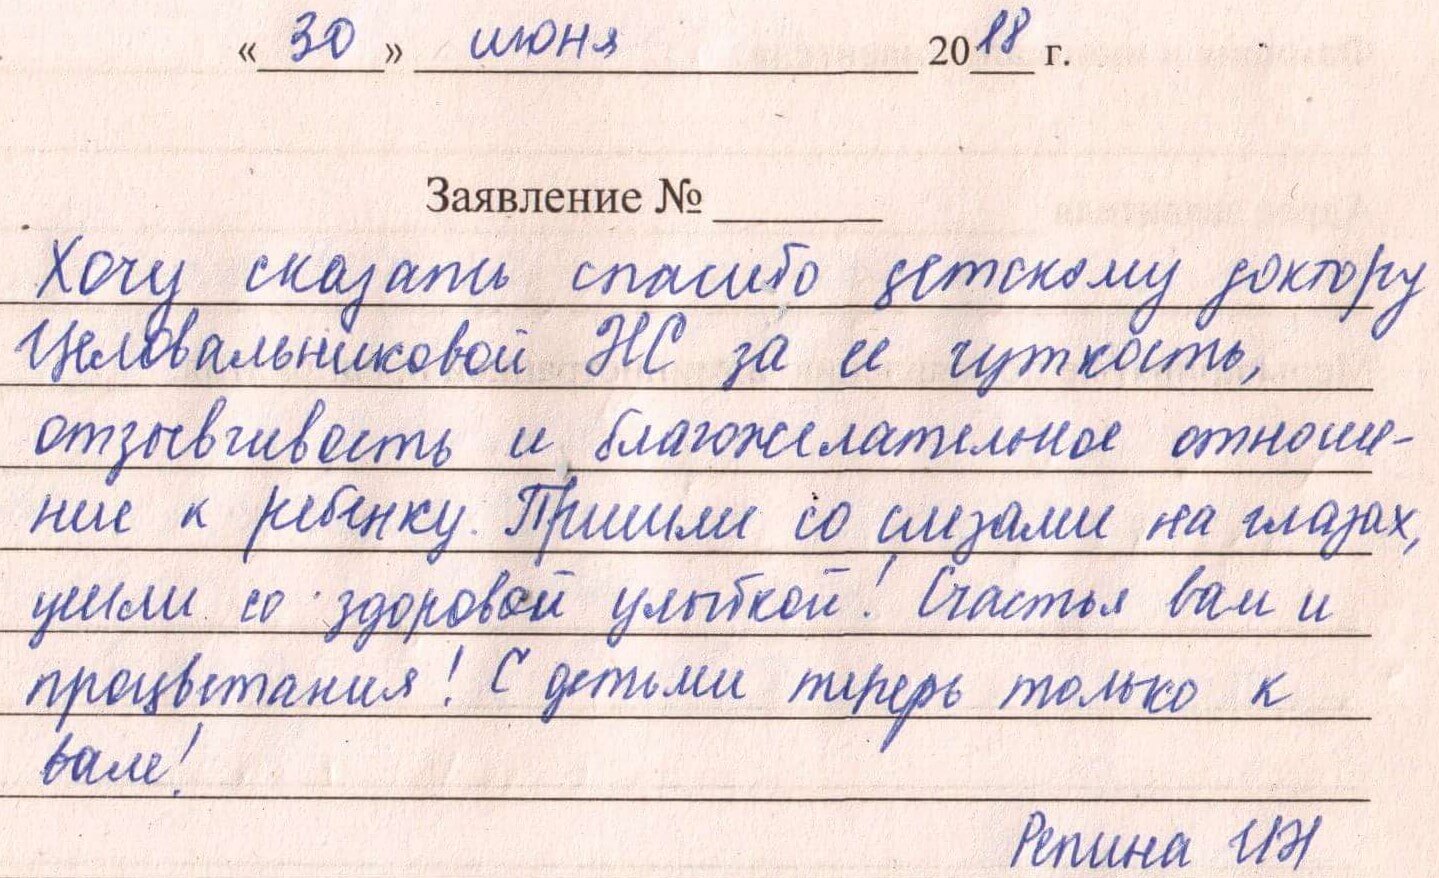 « 30 » июня 2018 г.
Заявление № ______
Хочу сказать спасибо детскому доктору
Целовальниковой НС за ее чуткость,
отзывчивость и благожелательное отноше-
ние к ребенку. Пришли со слезами на глазах,
ушли со здоровой улыбкой! Счастья вам и
процветания! С детьми теперь только к
вам!
Репина ИН